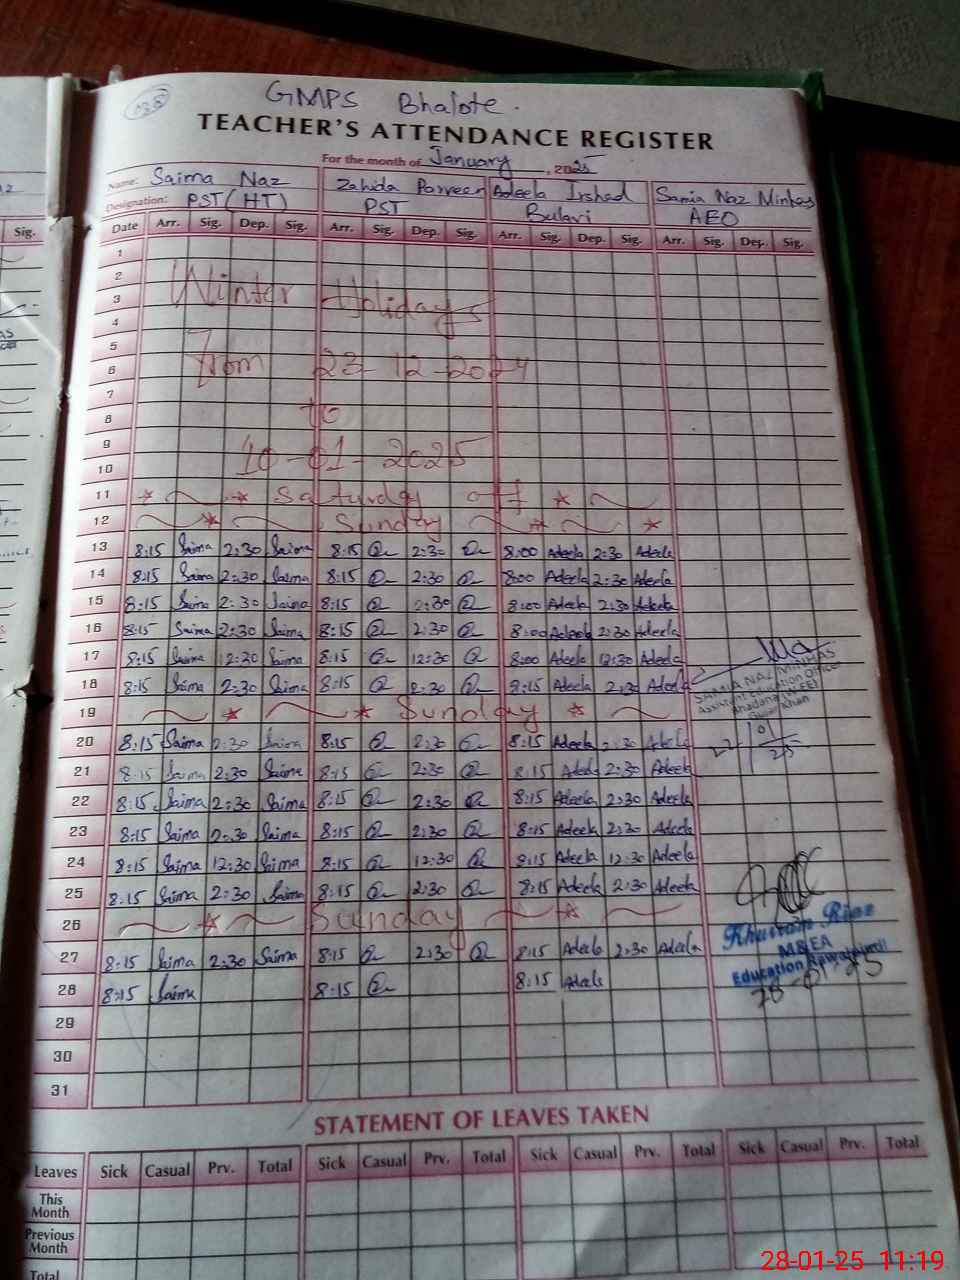 GMPS Bhalote.
TEACHER'S ATTENDANCE REGISTER
For the month of January, 2025
Name: Saima Naz Zahida Parveen Adeela Irshad Samia Naz Minhas
Designation: PST (HT) PST Bulavi AEO
Date Arr. Sig. Dep. Sig. Arr. Sig. Dep. Sig. Arr. Sig. Dep. Sig. Arr. Sig. Dep. Sig.
Sig.
1
2
Winter Holidays
3
4
5
From 23-12-2024
6
7
to
8
9
10-01-2025
10
11 Saturday off
12 Sunday
13 8:15 Saima 2:30 Saima 8:15 2:30 8:00 Adeela 2:30 Adeela
14 8:15 Saima 2:30 Saima 8:15 2:30 8:00 Adeela 2:30 Adeela
15 8:15 Saima 2:30 Saima 8:15 2:30 8:00 Adeela 2:30 Adeela
16 8:15 Saima 2:30 Saima 8:15 2:30 8:00 Adeela 2:30 Adeela
17 8:15 Saima 12:30 Saima 8:15 12:30 8:00 Adeela 12:30 Adeela
18 8:15 Saima 2:30 Saima 8:15 2:30 8:15 Adeela 2:30 Adeela
SAMIA NAZ MINHAS
Assistant Education Officer
Gujar Khan
19 Sunday
20 8:15 Saima 2:30 Saima 8:15 2:30 8:15 Adeela 2:30 Adeela
21 8:15 Saima 2:30 Saima 8:15 2:30 8:15 Adeela 2:30 Adeela
22 8:15 Saima 2:30 Saima 8:15 2:30 8:15 Adeela 2:30 Adeela
23 8:15 Saima 2:30 Saima 8:15 2:30 8:15 Adeela 2:30 Adeela
24 8:15 Saima 12:30 Saima 8:15 12:30 8:15 Adeela 12:30 Adeela
25 8:15 Saima 2:30 Saima 8:15 2:30 8:15 Adeela 2:30 Adeela
26 Sunday
Khurram Riaz
M&EA
Education Rawalpindi
28-01-25
27 8:15 Saima 2:30 Saima 8:15 2:30 8:15 Adeela 2:30 Adeela
28 8:15 Saima 8:15 8:15 Adeela
29
30
31
STATEMENT OF LEAVES TAKEN
Leaves Sick Casual Prv. Total Sick Casual Prv. Total Sick Casual Prv. Total Sick Casual Prv. Total
This Month
Previous Month
Total
28-01-25 11:19